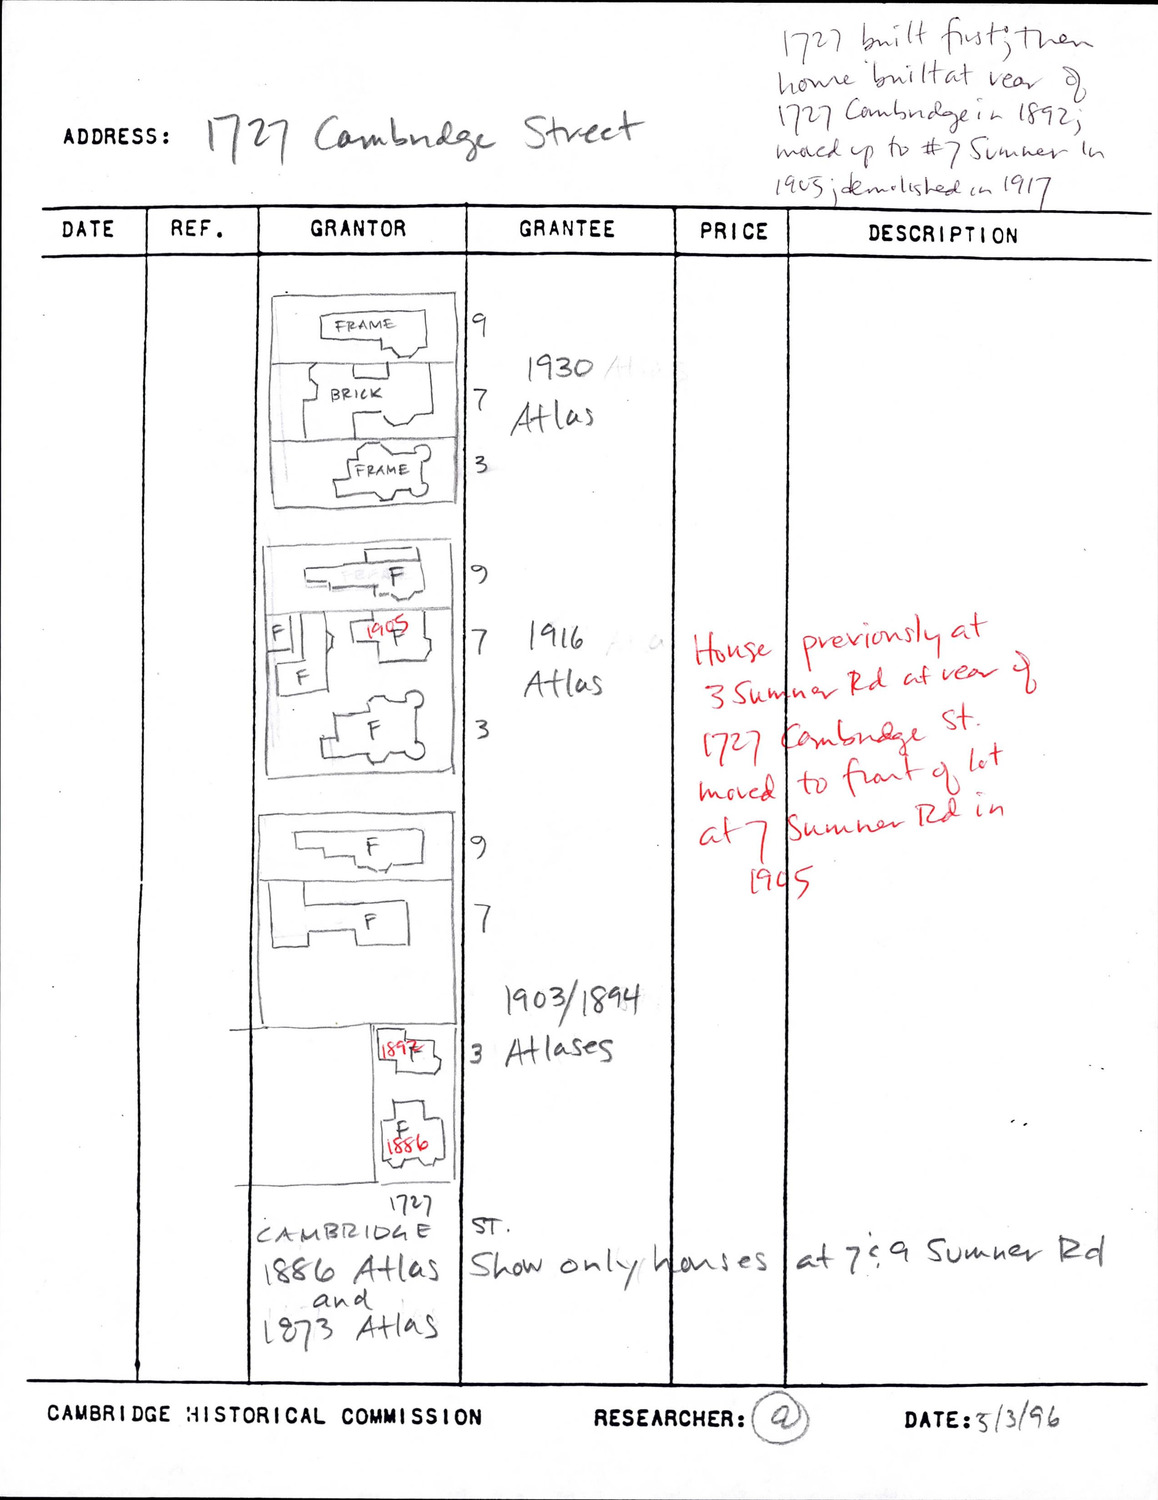 1727 built first; then
home built at rear of
1727 Cambridge in 1892;
moved up to #7 Sumner in
1905; demolished in 1917
ADDRESS: 1727 Cambridge Street
DATE REF. GRANTOR GRANTEE PRICE DESCRIPTION
FRAME 9
1930
BRICK 7
Atlas
FRAME 3
F 9
F 1905 F 7 1916
F
Atlas
F 3
House previously at
3 Sumner Rd at rear of
1727 Cambridge St.
moved to front of lot
at 7 Sumner Rd in
1905
F 9
F 7
1903/1894
1892 F 3 Atlases
F
1886
1727
CAMBRIDGE ST.
1886 Atlas Show only houses at 7 & 9 Sumner Rd
and
1873 Atlas
CAMBRIDGE HISTORICAL COMMISSION RESEARCHER: a DATE: 5/3/96